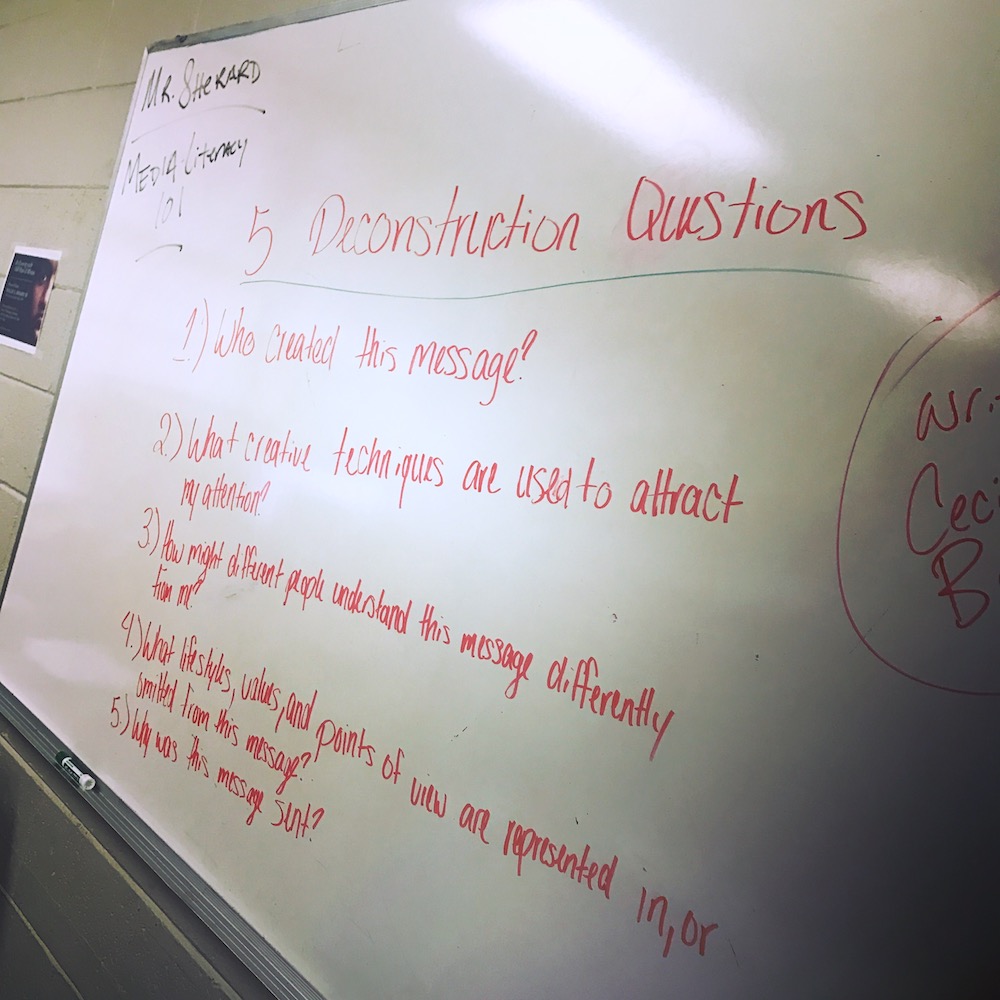 MR. SHERARD
MEDIA Literacy
101
5 Deconstruction Questions
1.) Who created this message?
2.) What creative techniques are used to attract
my attention?
3.) How might different people understand this message differently
from me?
4.) What lifestyles, values, and points of view are represented in, or
omitted from this message?
5.) Why was this message sent?
Wri
Ceci
B